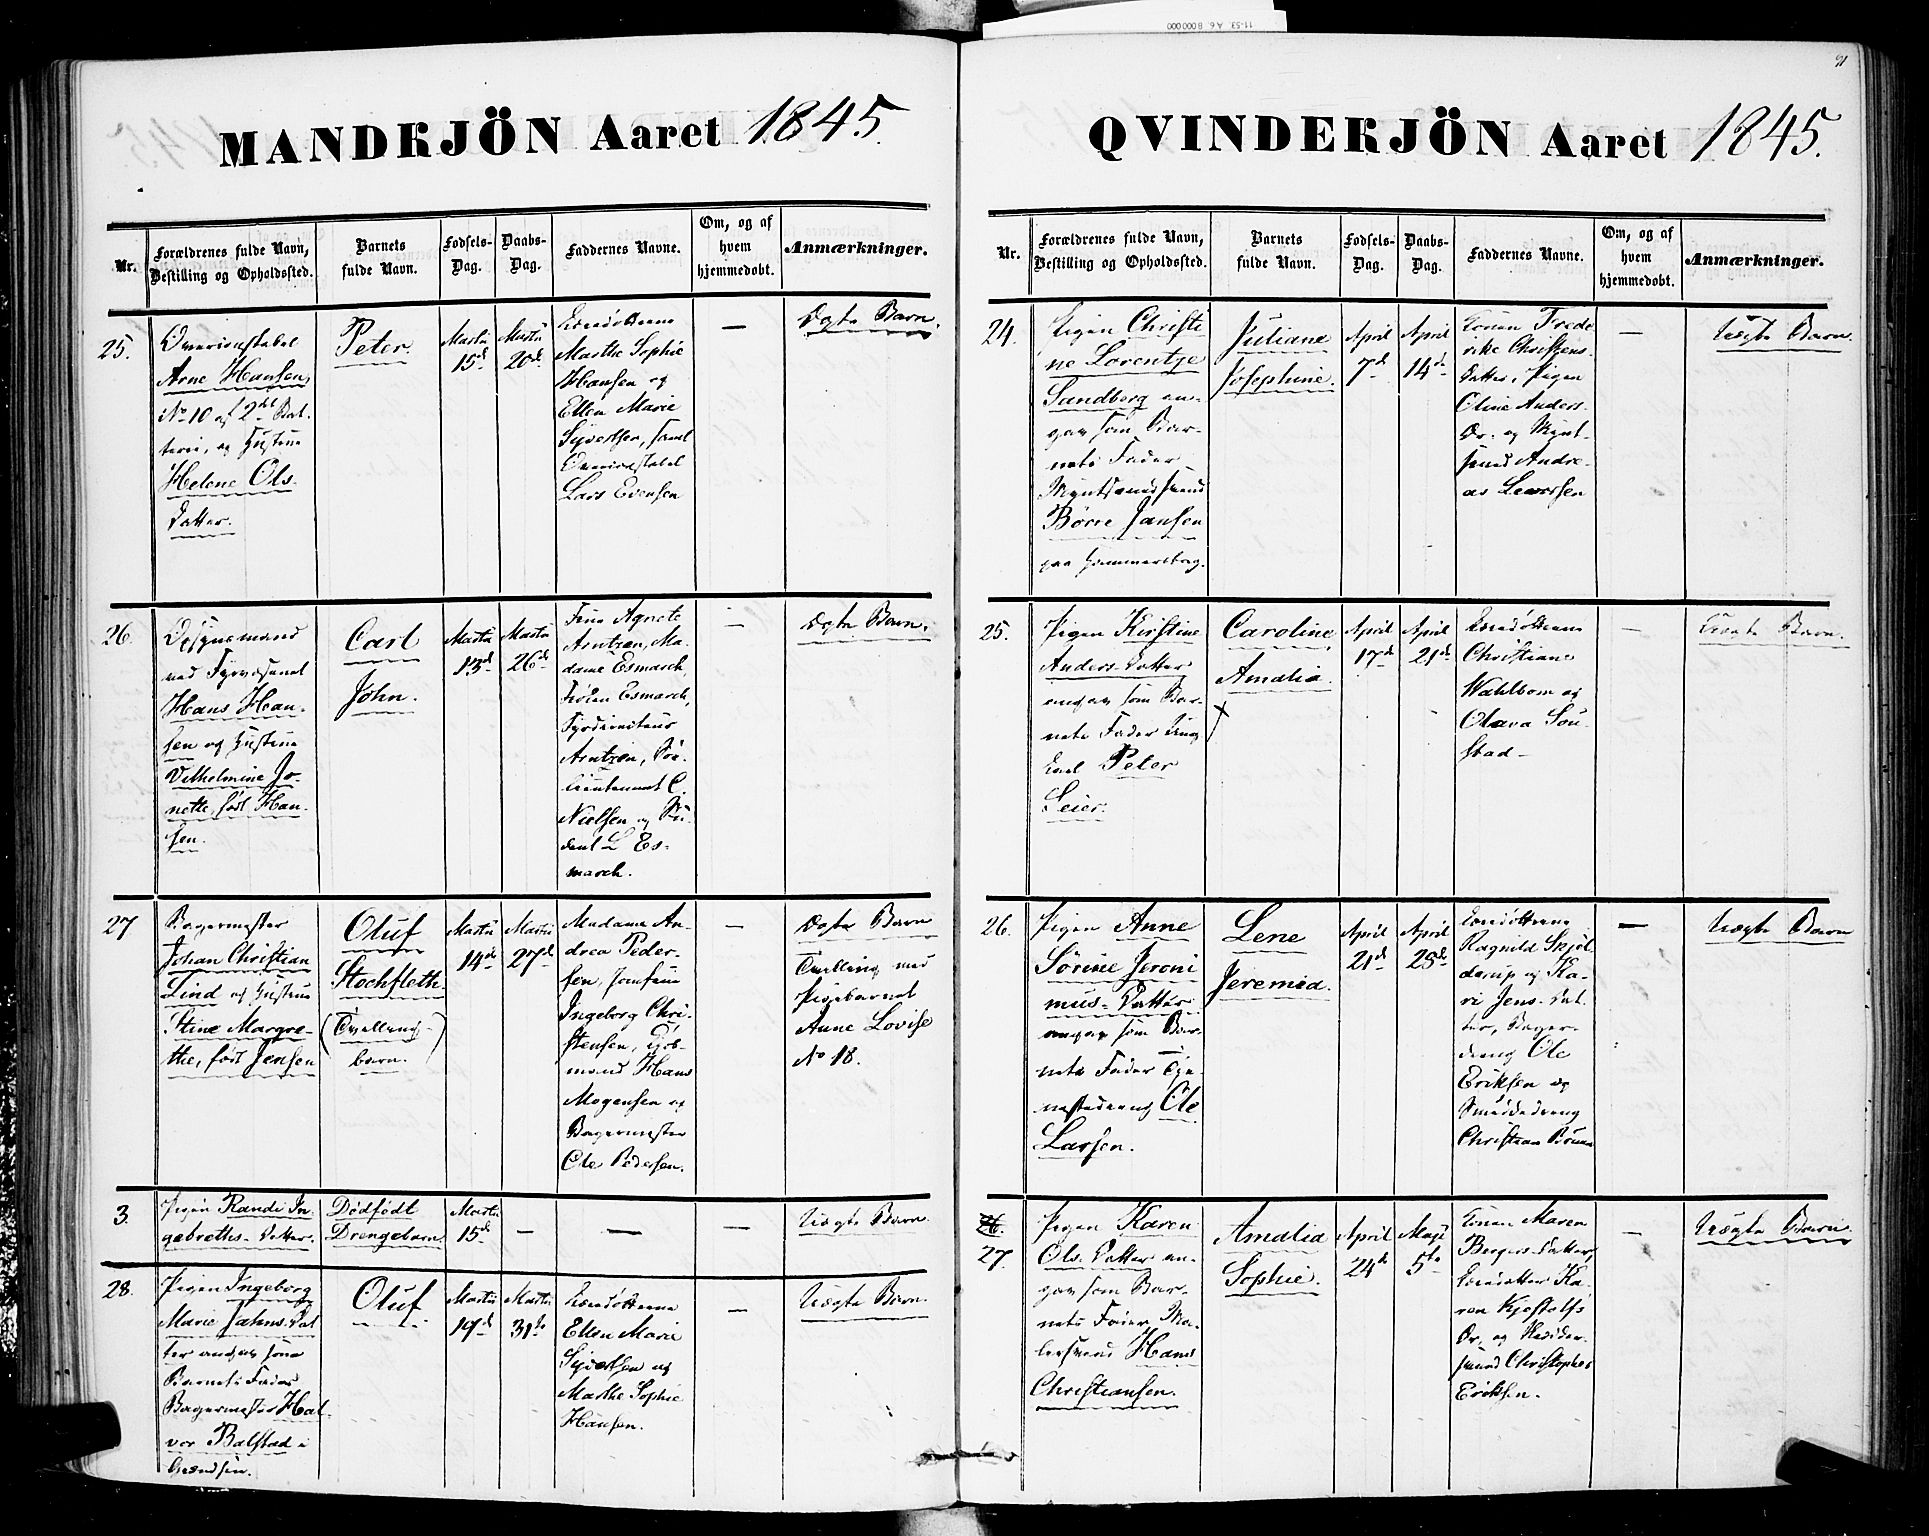 11-53. A6. 8000000
91
MANDKJÖN Aaret 1845.
Nr.
Forældrenes fulde Navn,
Bestilling og Opholdssted.
Barnets
fulde Navn.
Födsels-
Dag.
Daabs-
Dag.
Faddernes Navne.
Om, og af
hvem
hjemmedøbt.
Anmærkninger.
25.
Arne Hansen,
No 10 af 2det Bat-
terie, og Hustrue
Helene Ols-
Datter.
Peter.
Martii
15de
Martii
20de
Marthe Sophie
Hansen og
Ellen Marie
Syvertsen, samt
Lars Evensen
—
Ægte Barn.
26
ved Fyrvæsenet
Hans Han-
sen og Hustrue
Vilhelmine Jo-
nette, født Han-
sen.
Carl
John.
Martii
13de
Martii
26de
Frue Agnete
Arntzen, Ma-
dame Esmarch,
Frøken Esmarch,
Arntzen, Sø-
lieutenant C.
Nielsen og Stu-
dent L Es-
march.
—
Ægte Barn.
27
Bagermester
Johan Christian
Lind og Hustrue
Stine Margre-
the, født Jensen
Oluf
Stochfleth.
(Tvelling-
barn.)
Martii
14de
Martii
27de
Madame An-
drea Peder-
sen, Jomfrue
Ingeborg Chri-
stensen,
Hans
Mogensen og
Bagermester
Ole Pedersen.
—
Ægte Barn
Tvelling med
Pigebarnet
Anne Lovise
No 18.
3.
Pigen Randi In-
gebreths-Datter.
Dødfødt
Drengebarn.
Martii
15de
—
—
—
Uægte Barn.
28.
Pigen Ingeborg
Marie Jahns-Dat
ter angav som
Barnets Fader
Bagermester Hal-
vor Balstad i
Oluf.
Martii
19de
Martii
31te
Ellen Marie
Syvertsen og
Marthe Sophie
Hansen.
—
Uægte Barn.
QVINDEKJÖN Aaret 1845.
Nr.
Forældrenes fulde Navn,
Bestilling og Opholdssted.
Barnets
fulde Navn.
Födsels-
Dag.
Daabs-
Dag.
Faddernes Navne.
Om, og af
hvem
hjemmedøbt.
Anmærkninger.
24.
Pigen Christi
ne Lorentze
Sandberg an-
gav som Bar-
nets Fader
Børre Jansen
paa Hammersborg.
Juliane
Josephine.
April
7de
April
14de
Konen Frede
rike Christens-
datter, Pigen
Oline Anders-
Dr. og Mynt-
svend Andre-
as Leversen
—
Uægte Barn.
25.
Pigen Kirstine
Anders-Datter
angav som Bar-
nets Fader Ung-
karl Peter
Seier.
Caroline
Amalia.
April
17de
April
21de
Christiane
Wahlbom og
Olava Sou-
stad-
—
Uægte Barn.
26.
Pigen Anne
Sørine Jeroni
mus-Datter
angav som Bar-
nets Fader Tje-
nestedreng Ole
Larsen.
Lene
Jeremia.
April
21de
April
25de
Ragnild Skjöl-
derup og Ka-
ri Jens-Dat-
ter, Bager-
dreng Ole
Eriksen og
Smeddedreng
Christian Bruun
—
Uægte Barn
26.
27.
Pigen Karen
Ols-Datter an-
gav som Bar-
nets Fader Ma-
lersvend Hans
Christiansen.
Amalia
Sophie.
April
24de
Maji
5te
Konen Maren
Bergers-Datter,
Ka-
ren Kjøstolfs
Dr. og
svend Christopher
Eriksen.
—
Uægte Barn.